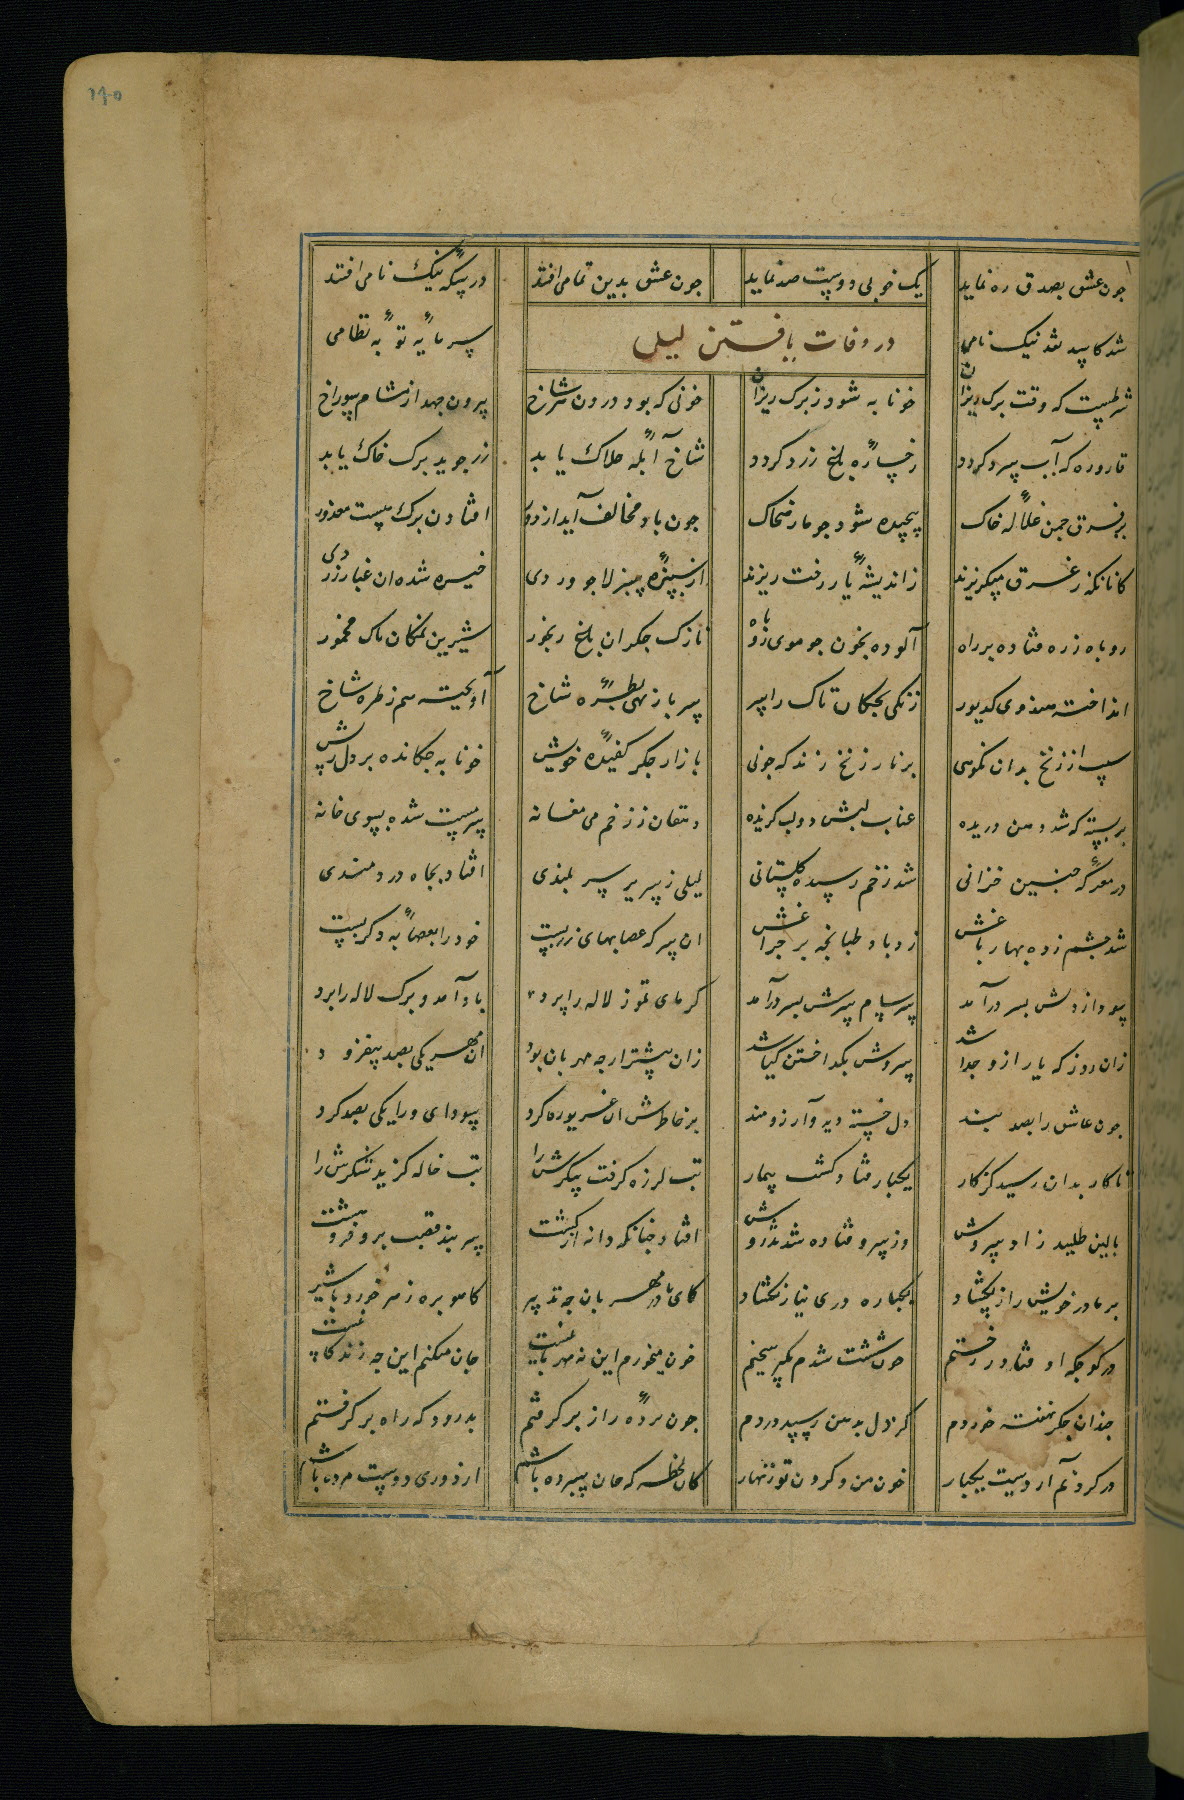 ۱۹۵
چون عشق بصدق ره نماید یک خوبی دوست صد نماید چون عشق بدین تمامی افتد در سکه نیک نامی افتد
شد کاسد نقد نیک نامی سرمایهٔ تو به نظامی
در وفات یافتن لیلی
شرطست که وقت برگ ریزان خونابه شود ز برگ ریزان خونی که بود درون هر شاخ بیرون جهد از مشام سوراخ
قاروره که آب سرد گردد رخسارهٔ باغ زرد گردد شاخ آبله هلاک یابد زر جوید برگ خاک یابد
بر فرق چمن کلاله خاک پیچیده شود چو مار ضحاک چون باد مخالف آید از دور افتادن برگ هست معذور
کانان که ز غرق میگریزند ز اندیشهٔ یار رخت ریزند از سبزهٔ سبز لاجوردی خیره شده ان غبار زردی
روباه ز ره فتاده بر راه آلوده بخون چو موی روباه نازک جگران باغ رنجور شیرین نمکان تاک مخمور
انداخته هندوی کدیور زنگی بچگان تاک را سر سرباز نهی بطرهٔ شاخ آویخته هم ز طره شاخ
سیب از زنخ بدان نگونی بر نار زنخ زند که چونی با نار جگر کفیدهٔ خویش خونابه چکانده بر دل ریش
بر پسته که شد دهن دریده عناب لبش دو لب گزیده دهقان ز زخم می مغانه سرمست شده بسوی خانه
در معرکهٔ چنین خزانی شد زخم رسیده گلستانی لیلی ز سریر سر بلندی افتاد بچاه دردمندی
شد چشم زده بهار باغش زد باد طبانچه بر چراغش ان سر که عصابهای زر بست خود را بعصابهٔ دگر بست
سودا ز دلش بسر درآمد سرسام سرش بسر درآمد گرمای تموز لاله را برد باد آمد و برگ لاله را برد
زان روز که یار ازو جدا شد سروش بگداختن گیا شد زان بیشتر ار چه مهربان بود ان مهر یکی بصد بیفزود
چون عاشق را بصد بند دل خسته دید و آرزومند بر خاطرش ان غریو ره کرد سودای ورا یکی بصد کرد
تا کار بدان رسید کز کار یکبار فتاد و گشت بیمار تب لرزه گرفت پیکرش را تبخاله گزید شکرش را
بالین طلبید زاد سروش وز سرو فتاده شد تذروش افتاد چنانکه دانه از کشت سربند قصب برو فروهشت
بر مادر خویش راز بگشاد یکباره دری نیاز بگشاد کای مادر مهربان چه تدبیر کاهو بره زهر خورد با شیر
در کوچگه او فتاد رختم چون سست شدم مگیر سختم خون میخورم این نه مهربانیست جان میکنم این چه زندگانیست
چندان جگر نهفته خوردم کز دل بدهن رسید دردم چون مردهٔ راز بر گرفتم بدرود که راه بر گرفتم
در گردنم آر دست یکبار خون من و گردن تو زنهار کان لحظه که جان سپرده باشم از دوری دوست مرده باشم